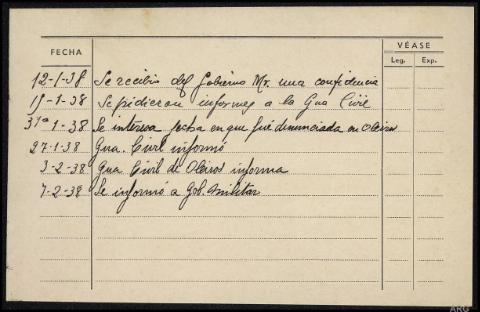 FECHA
VÉASE
Leg. Exp.
12-1-38 Se recibio del Gobierno Mr. una confidencia
15-1-38 Se pidieron informes a la Gua Civil
31ª-1-38 Se interesa fecha en que fué denunciada en Oleiros
27-1-38 Gua. Civil informó
3-2-38 Gua Civil de Oleiros informa
7-2-38 Se informó a Gob. Militar
ARG